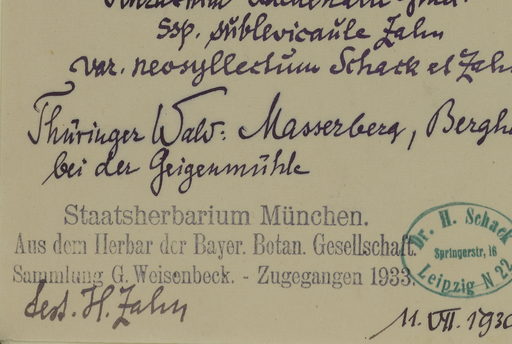 ssp. sublevicaule Zahn
var. neosyllectum Schack et Zahn
Thüringer Wald: Masserberg, Bergh
bei der Geigenmühle
Staatsherbarium München.
Aus dem Herbar der Bayer. Botan. Gesellschaft.
Sammlung G. Weisenbeck. - Zugegangen 1933.
Dr. H. Schack
Springerstr. 16
Leipzig N 22
H. Zahn
11. VII. 1930